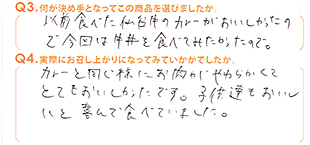 Q3.何が決め手となってこの商品を選びましたか。
以前食べた仙台牛のカレーがおいしかったの
で今回は牛丼を食べてみたかったので。
Q4.実際にお召し上がりになってみていかがでしたか。
カレーと同じ様にお肉がやわらかくて
とてもおいしかったです。子供達もおいし
いと喜んで食べていました。